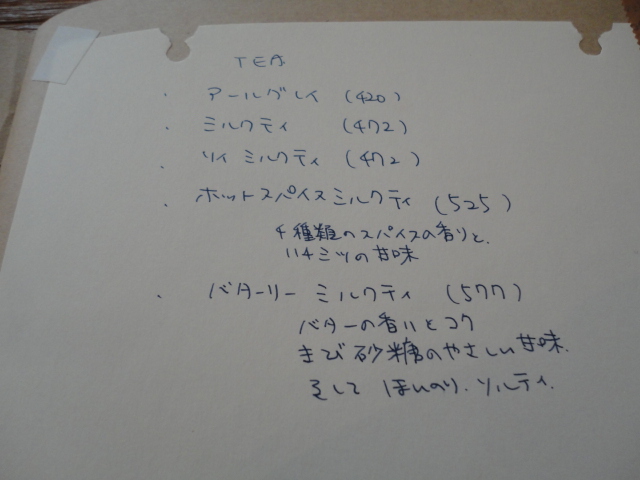 TEA
・ アールグレイ (420)
・ ミルクティ (472)
・ ソイ ミルクティ (472)
・ ホットスパイスミルクティ (525)
4種類のスパイスの香りと、
ハチミツの甘味
・ バターリー ミルクティ (577)
バターの香りとコク
きび砂糖のやさしい甘味、
そして ほんのり、ソルティ、